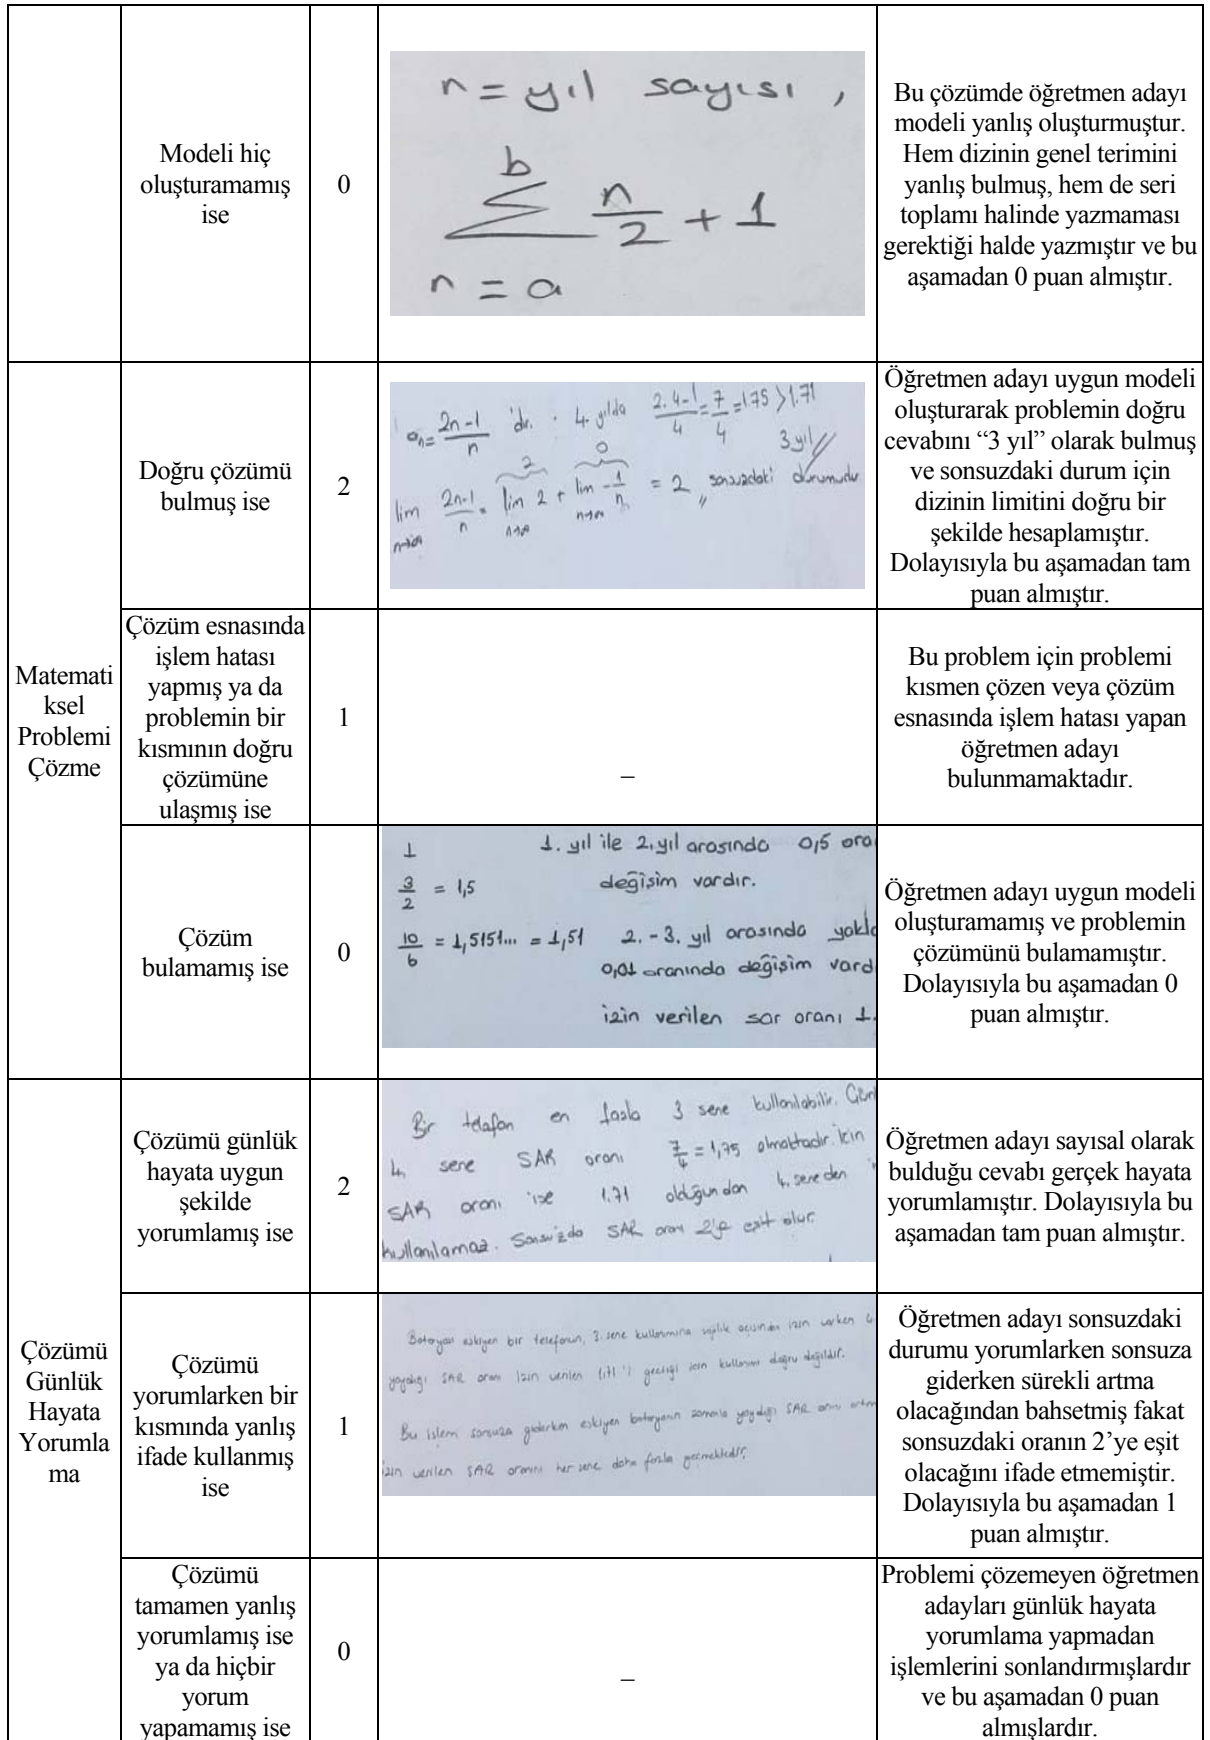 Modeli hiç
oluşturamamış
ise
0
n = yıl sayısı ,
b
∑ n/2 + 1
n = a
Bu çözümde öğretmen adayı
modeli yanlış oluşturmuştur.
Hem dizinin genel terimini
yanlış bulmuş, hem de seri
toplamı halinde yazmaması
gerektiği halde yazmıştır ve bu
aşamadan 0 puan almıştır.
Matemati
ksel
Problemi
Çözme
Doğru çözümü
bulmuş ise
2
an = 2n-1/n 'dir. 4. yılda 2.4-1/4 = 7/4 = 1.75 > 1.71
3 yıl //
2 0
lim n→∞ 2n-1/n = lim n→∞ 2 + lim n→∞ -1/n = 2 // sonsuzdaki durumudur
Öğretmen adayı uygun modeli
oluşturarak problemin doğru
cevabını “3 yıl” olarak bulmuş
ve sonsuzdaki durum için
dizinin limitini doğru bir
şekilde hesaplamıştır.
Dolayısıyla bu aşamadan tam
puan almıştır.
Çözüm esnasında
işlem hatası
yapmış ya da
problemin bir
kısmının doğru
çözümüne
ulaşmış ise
1
–
Bu problem için problemi
kısmen çözen veya çözüm
esnasında işlem hatası yapan
öğretmen adayı
bulunmamaktadır.
Çözüm
bulamamış ise
0
1 1. yıl ile 2. yıl arasında 0,5 ora
3/2 = 1,5 değişim vardır.
10/6 = 1,5151... = 1,51 2. - 3. yıl arasında yakla
0,01 oranında değişim vard
izin verilen sar oranı 1.
Öğretmen adayı uygun modeli
oluşturamamış ve problemin
çözümünü bulamamıştır.
Dolayısıyla bu aşamadan 0
puan almıştır.
Çözümü
Günlük
Hayata
Yorumla
ma
Çözümü günlük
hayata uygun
şekilde
yorumlamış ise
2
Bir telefon en fazla 3 sene kullanılabilir. Çün
4. sene SAR oranı 7/4 = 1,75 olmaktadır. İzin
SAR oranı ise 1.71 olduğundan 4. seneden i
kullanılamaz. Sonsuzda SAR oranı 2'ye eşit olur.
Öğretmen adayı sayısal olarak
bulduğu cevabı gerçek hayata
yorumlamıştır. Dolayısıyla bu
aşamadan tam puan almıştır.
Çözümü
yorumlarken bir
kısmında yanlış
ifade kullanmış
ise
1
Bataryası eskiyen bir telefonun, 3. sene kullanımına sağlık açısından izin varken 4
yaydığı SAR oranı izin verilen 1,71 'i geçtiği için kullanımı doğru değildir.
Bu işlem sonsuza giderken eskiyen bataryanın zamanla yaydığı SAR oranı artm
izin verilen SAR oranını her sene daha fazla geçmektedir.
Öğretmen adayı sonsuzdaki
durumu yorumlarken sonsuza
giderken sürekli artma
olacağından bahsetmiş fakat
sonsuzdaki oranın 2’ye eşit
olacağını ifade etmemiştir.
Dolayısıyla bu aşamadan 1
puan almıştır.
Çözümü
tamamen yanlış
yorumlamış ise
ya da hiçbir
yorum
yapamamış ise
0
–
Problemi çözemeyen öğretmen
adayları günlük hayata
yorumlama yapmadan
işlemlerini sonlandırmışlardır
ve bu aşamadan 0 puan
almışlardır.